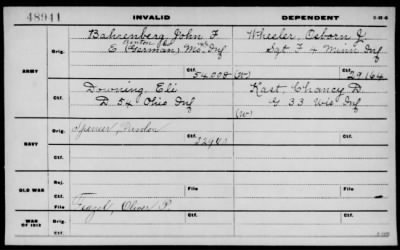 48941 INVALID DEPENDENT
Orig. Bahrenberg, John F Wheeler, Osborn J.
Benton Co
E (German) Mo. Inf Sgt F 4 Minn Inf
ARMY Ctf. 54.008 (W) Ctf. 29.164
Ctf. Downing, Eli Kast, Chancy D.
D. 54 Ohio Inf G 33 Wis Inf
(W)
Orig. Spencer, Ctf.
NAVY
Ctf.
OLD WAR Rej. File
Ctf. File
WAR OF 1812 Orig. Oliver P. Ctf.
Ctf.